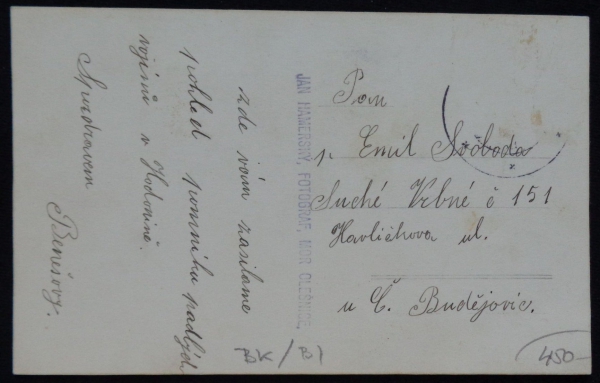 zde vám zasílame
pohled pomníku padlých
vojínů v Hodoníně.
S pozdravem
Benešovy.
JAN HAMERSKÝ, FOTOGRAF, MOR. OLEŠNICE.
Pan
p. Emil Svoboda
Suché Vrbné č 151
Havlíčkova ul.
u Č. Budějovic.
450-